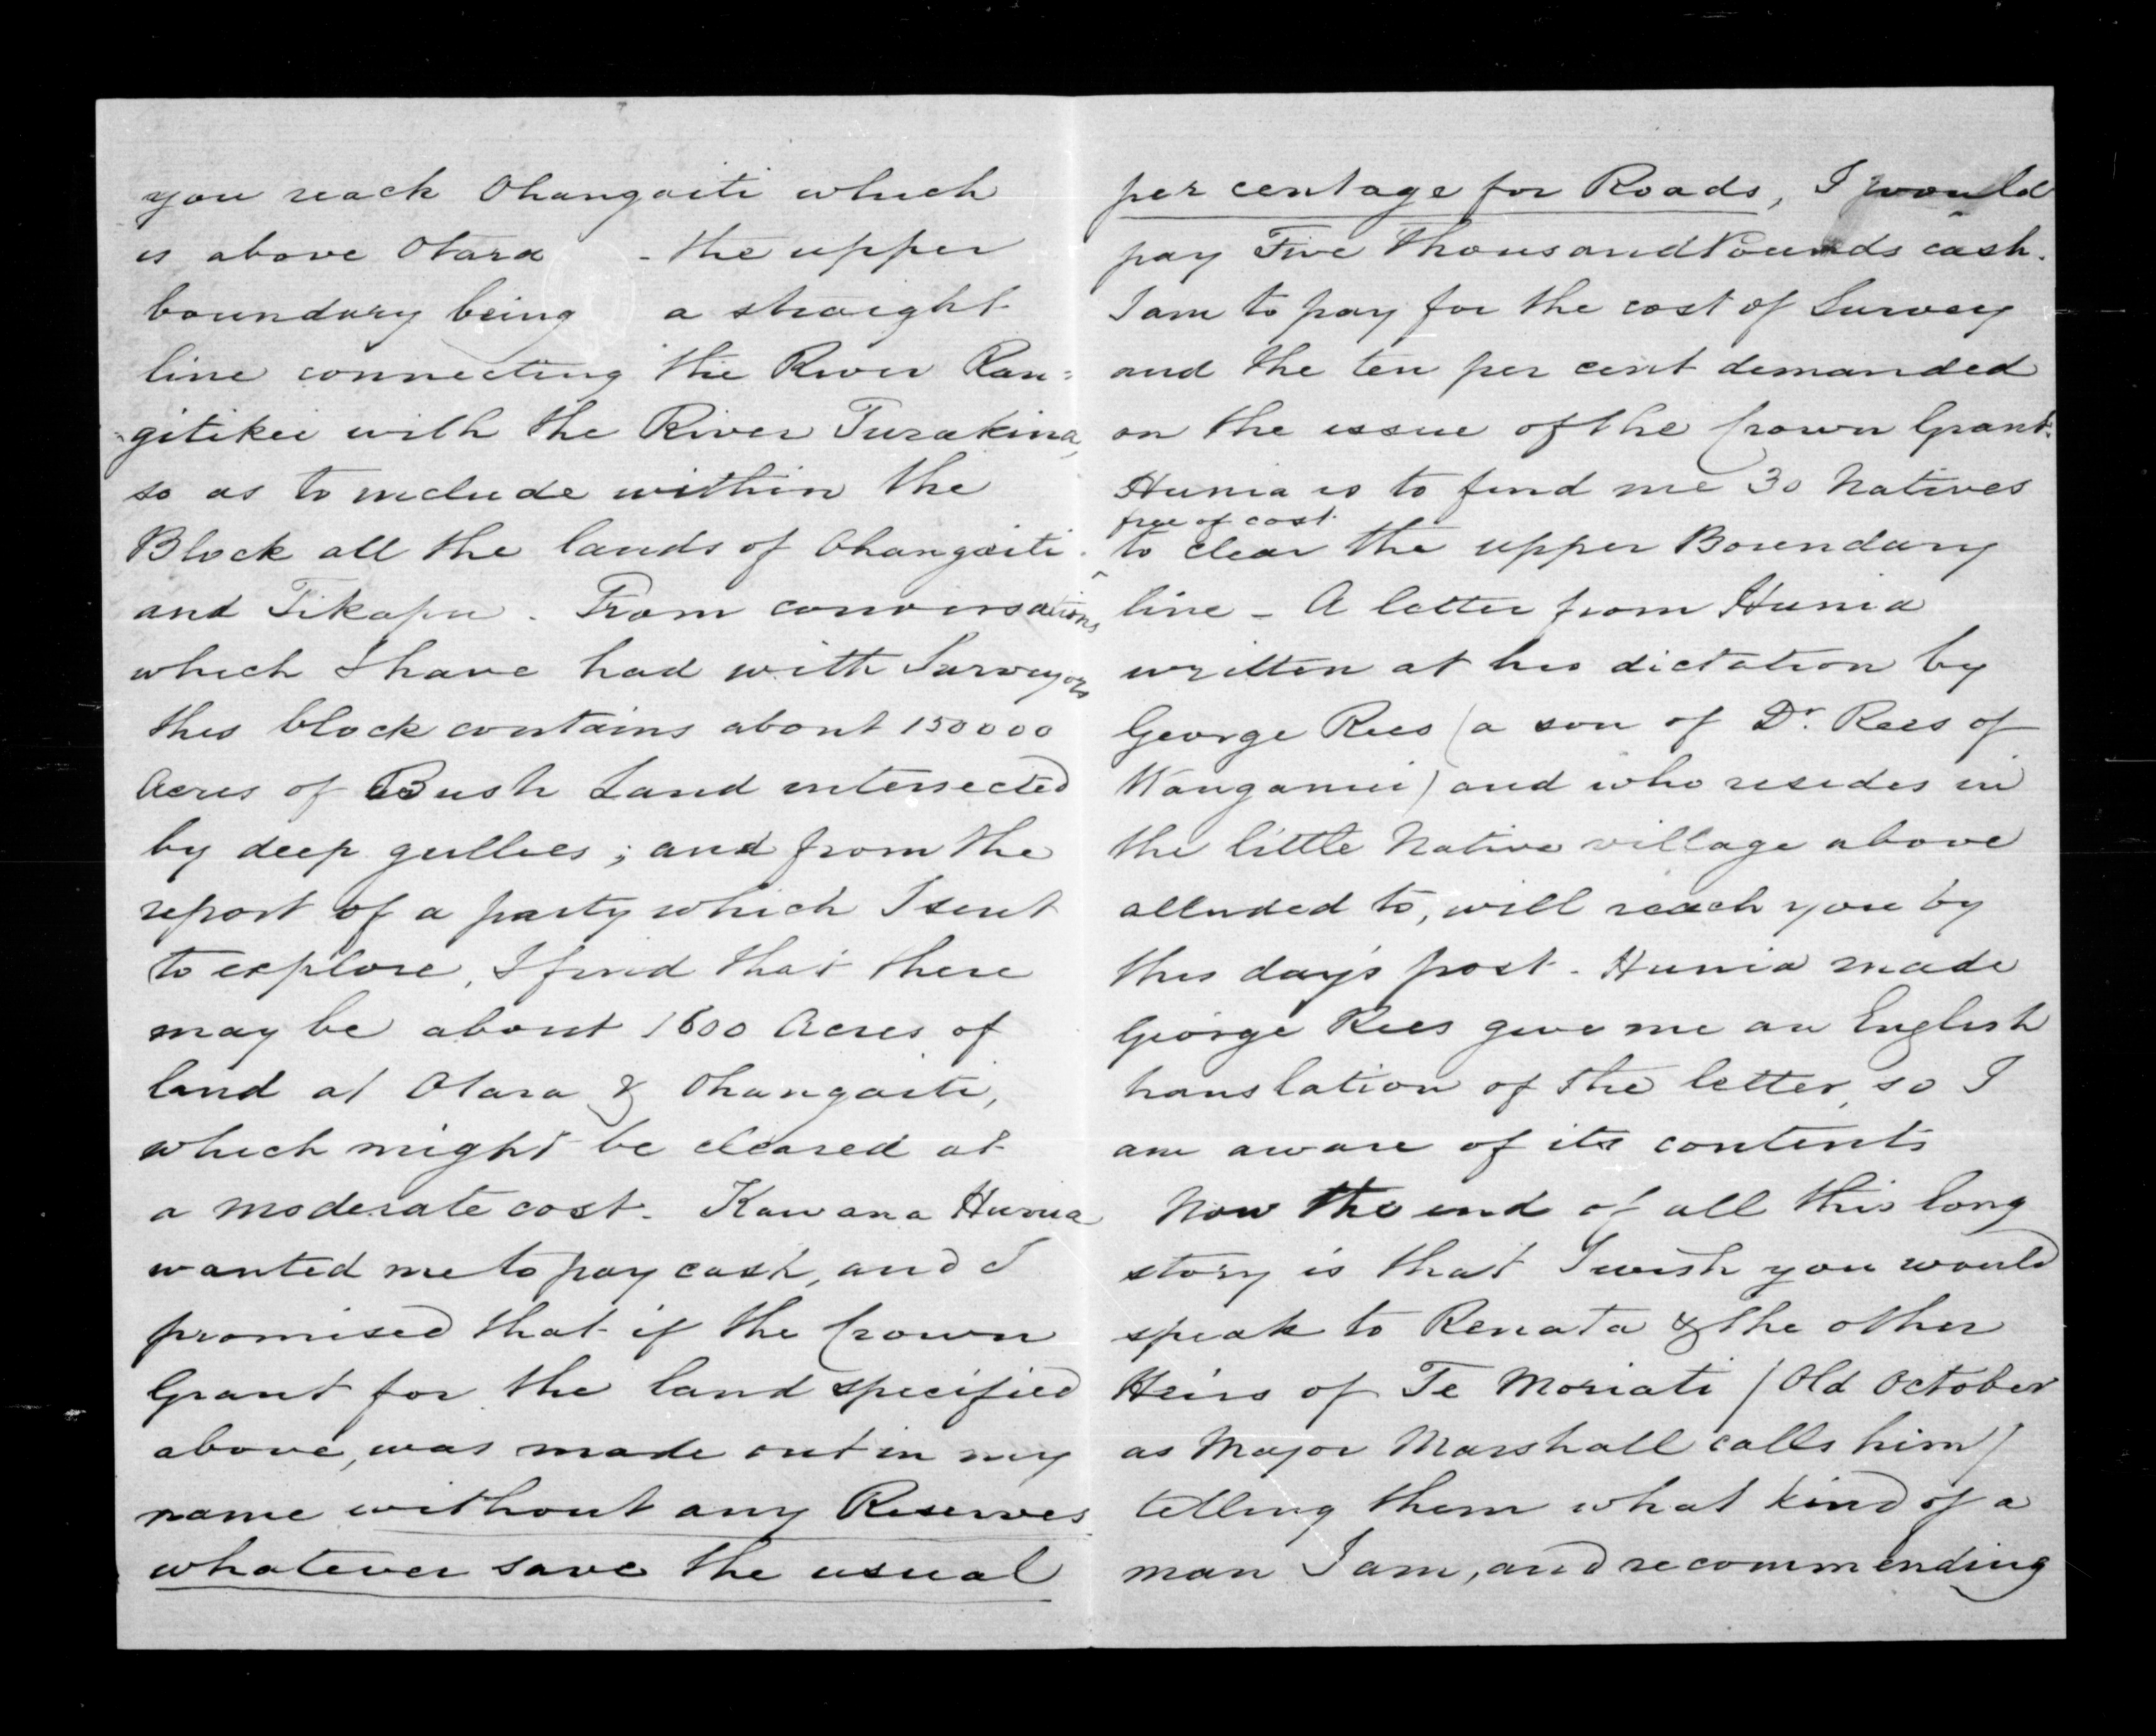 you reach Ohangaiti which
is above Otara - the upper
boundary being a straight
line connecting the River Ran=
=gitikei with the River Turakina,
so as to include within the
Block all the lands of Ohangaiti
and Tikapu. From conversations
which I have had with Surveyors
this block contains about 150000
Acres of Bush Land intersected
by deep gullies; and from the
report of a party which I sent
to explore, I find that there
may be about 1600 Acres of
land at Otara & Ohangaiti,
which might be cleared at
a moderate cost. Kawana Hunia
wanted me to pay cash, and I
promised that if the Crown
Grant for the land specified
above, was made out in my
name without any Reserves
whatever save the usual
per centage for Roads, I would
pay Five Thousand Pounds cash.
I am to pay for the cost of Survey
and the ten per cent demanded
on the issue of the Crown Grant.
Hunia is to find me 30 Natives
free of cost
to clear the upper Boundary
line - A letter from Hunia
written at his dictation by
George Rees (a son of Dr. Rees of
Wanganui) and who resides in
the little Native village above
alluded to, will reach you by
this day's post. Hunia made
George Rees give me an English
translation of the letter, so I
am aware of its contents
Now the end of all this long
story is that I wish you would
speak to Renata & the other
Heirs of Te Moriati (Old October
as Major Marshall calls him)
telling them what kind of a
man I am, and recommending